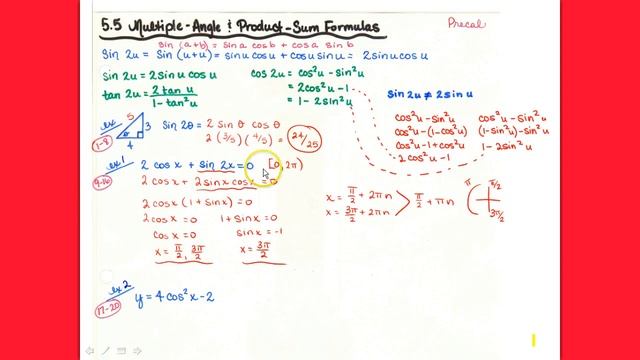 5.5 Multiple-Angle & Product-Sum Formulas
Precal
sin (a+b) = sin a cos b + cos a sin b
sin 2u = sin (u+u) = sin u cos u + cos u sin u = 2 sin u cos u
sin 2u = 2 sin u cos u
cos 2u = cos²u - sin²u
= 2cos²u - 1
= 1 - 2 sin²u
tan 2u = 2 tan u / 1 - tan²u
sin 2u ≠ 2 sin u
cos²u - sin²u
cos²u - (1-cos²u)
cos²u - 1 + cos²u
2 cos²u - 1
cos²u - sin²u
(1-sin²u) - sin²u
1 - 2 sin²u
ex
1-8
5
3
4
θ
sin 2θ = 2 sin θ cos θ
2 (3/5) (4/5) = 24/25
ex 1
9-16
2 cos x + sin 2x = 0 [0, 2π)
2 cos x + 2 sin x cos x = 0
2 cos x (1 + sin x) = 0
2 cos x = 0 1 + sin x = 0
cos x = 0 sin x = -1
x = π/2, 3π/2 x = 3π/2
x = π/2 + 2πn
x = 3π/2 + 2πn
> π/2 + πn
π
π/2
3π/2
ex 2
17-20
y = 4 cos²x - 2